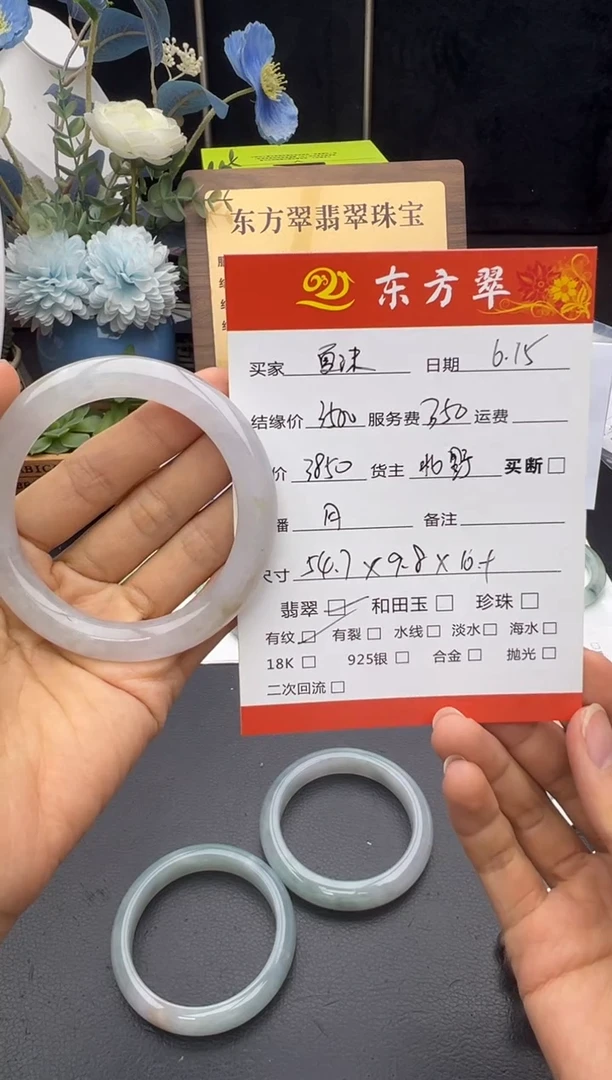 东方翠翡翠珠宝
东方翠
买家 日期 6.15
结缘价 3500 服务费 350 运费
价 3850 货主 北野 买断
播 月 备注
尺寸 54.7×9.8×16+
翡翠 和田玉 珍珠
有纹 有裂 水线 淡水 海水
18K 925银 合金 抛光
二次回流